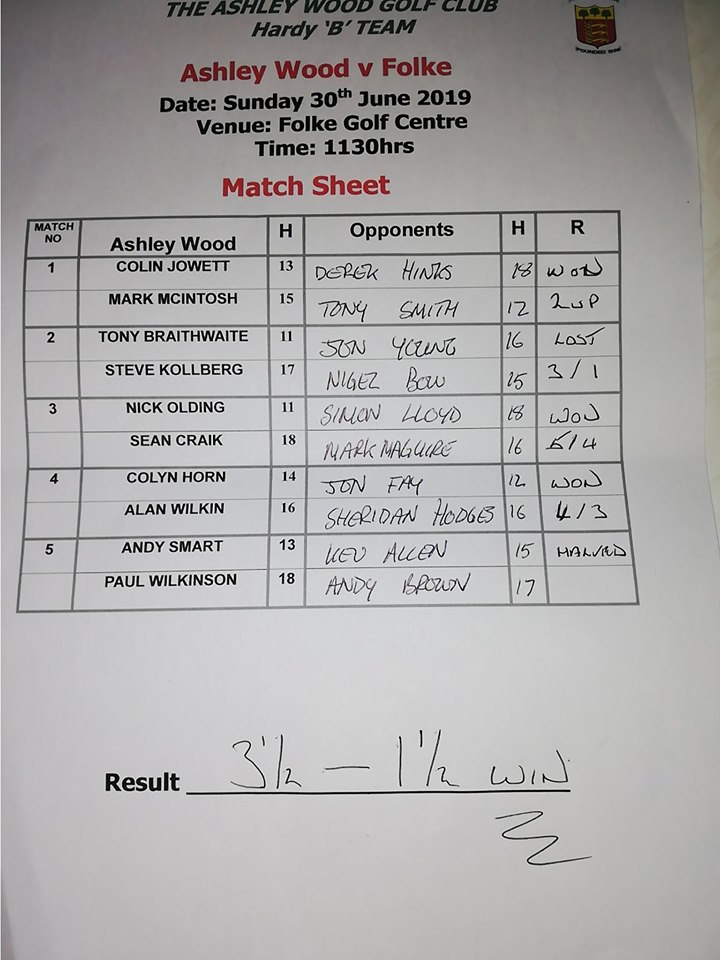 THE ASHLEY WOOD GOLF CLUB
Hardy 'B' TEAM
FOUNDED 1896
Ashley Wood v Folke
Date: Sunday 30th June 2019
Venue: Folke Golf Centre
Time: 1130hrs
Match Sheet
MATCH NO Ashley Wood H Opponents H R
1 COLIN JOWETT 13 DEREK HINKS 18 WON
MARK MCINTOSH 15 TONY SMITH 12 2UP
2 TONY BRAITHWAITE 11 JON YOUNG 16 LOST
STEVE KOLLBERG 17 NIGEL BOW 15 3/1
3 NICK OLDING 11 SIMON LLOYD 18 WON
SEAN CRAIK 18 MARK MAGUIRE 16 5/4
4 COLYN HORN 14 JON FAY 12 WON
ALAN WILKIN 16 SHERIDAN HODGES 16 4/3
5 ANDY SMART 13 KEV ALLEN 15 HALVED
PAUL WILKINSON 18 ANDY BROWN 17
Result 3 1/2 — 1 1/2 WIN